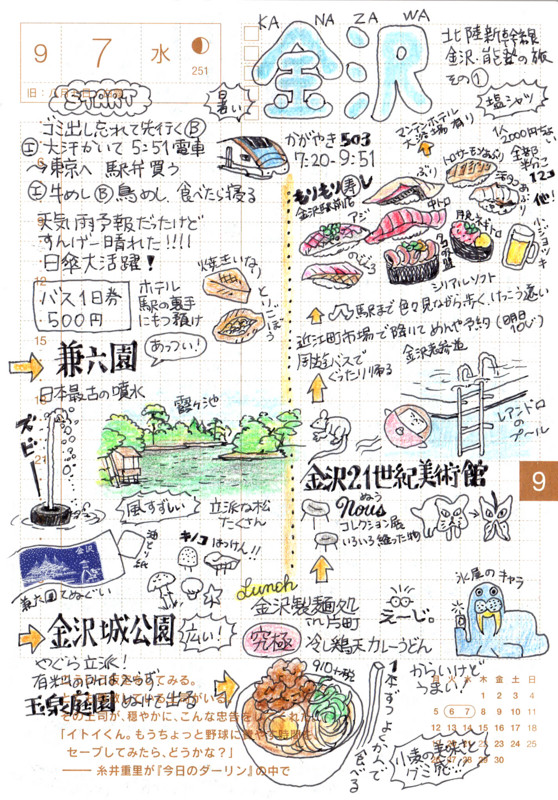 KA NA ZA WA
金沢
北陸新幹線
金沢・能登の旅
その①
9 7 水
251
暑い
START
ゴミ出し忘れて先行くⒷ
Ⓘ大汗かいて5:51電車
→東京へ 駅弁買う
Ⓘ牛めしⒷ鳥めし、食べたら寝る
天気雨予報だったけど
すんげー晴れた!!!!
日傘大活躍!
バス1日券
500円
ホテル
駅の裏手
にもつ預け
焼きいなり
とりごぼう
兼六園
あっつい!
日本最古の噴水
ズビー!
霞ヶ池
風すずしい
立派な松
たくさん
金沢
油とり紙
兼六園てぬぐい
キノコはっけん!!
金沢城公園
広い!
やぐら立派!
玉泉庭園ぬけて出る
「イトイくん。もうちょっと野球に
セーブしてみたら、どうかな?」
── 糸井重里が『今日のダーリン』の中で
かがやき503
7:20-9:51
塩シャツ
マンテンホテル
大浴場有り
もりもり寿し
金沢駅前店
アジ
のどぐろ
ぶり
中トロ
トロサーモンあぶり
小ジョッキ
他
シリアルソフト
駅まで色々見ながら歩く、けっこう遠い
近江町市場で降りてめんや予約(明日10じ)
周遊バスで
ぐったり帰る
金沢老舗道
レアンドロ
のプール
金沢21世紀美術館
Nous
ぬう
コレクション展
いろいろ縫った物
Lunch
金沢製麺処
in片町
究極
冷し鶏天カレーうどん
910+税
えーじ。
氷屋のキャラ
からいけど
うまい!
1本ずつよくかんで
食べる
小麦の美味しさ
グミ系…
9
月 火 水 木 金 土 日
1 2 3 4
5 6 7 8 9 10 11
12 13 14 15 16 17 18